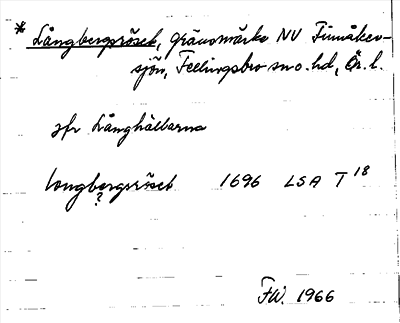 * Långbergsröset, gränsmärke NV Finnåker-
sjön, Fellingsbro sn o. hd, Ör. l.
jfr Långhällarna
longbergsröset 1696 LSA T 18
?
FW. 1966